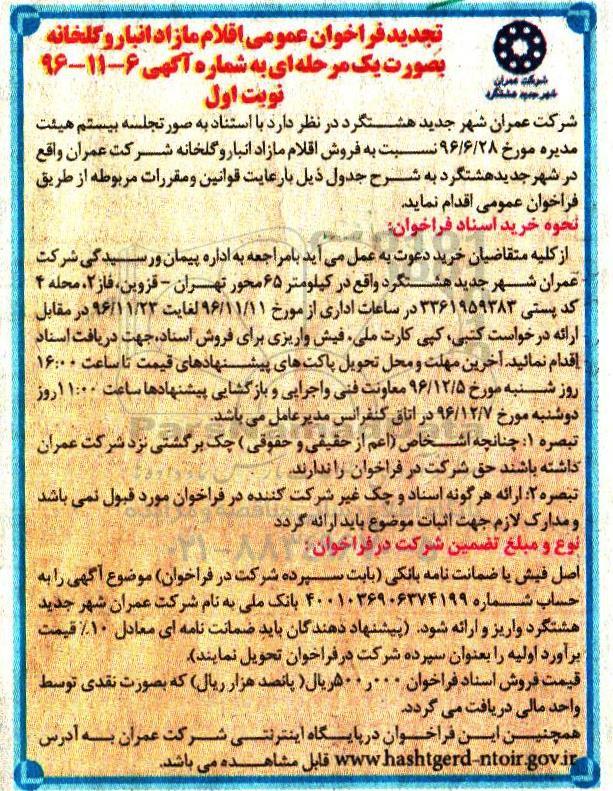 تجدید فراخوان عمومی اقلام مازاد انبار و گلخانه
بصورت یک مرحله ای به شماره آگهی ۶-۱۱-۹۶
نوبت اول
شرکت عمران
شهر جدید هشتگرد
شرکت عمران شهر جدید هشتگرد در نظر دارد با استناد به صورتجلسه بیستم هیئت
مدیره مورخ ۹۶/۶/۲۸ نسبت به فروش اقلام مازاد انبار و گلخانه شرکت عمران واقع
در شهر جدید هشتگرد به شرح جدول ذیل با رعایت قوانین و مقررات مربوطه از طریق
فراخوان عمومی اقدام نماید.
نحوه خرید اسناد فراخوان:
از کلیه متقاضیان خرید دعوت به عمل می آید با مراجعه به اداره پیمان و رسیدگی شرکت
عمران شهر جدید هشتگرد واقع در کیلومتر ۶۵ محور تهران - قزوین، فاز ۲، محله ۴
کد پستی ۳۳۶۱۹۵۹۳۸۳ در ساعات اداری از مورخ ۹۶/۱۱/۱۱ لغایت ۹۶/۱۱/۲۳ در مقابل
ارائه درخواست کتبی، کپی کارت ملی، فیش واریزی برای فروش اسناد، جهت دریافت اسناد
اقدام نمائید. آخرین مهلت و محل تحویل پاکت های پیشنهادهای قیمت تا ساعت ۱۶:۰۰
روز شنبه مورخ ۹۶/۱۲/۵ معاونت فنی و اجرایی و بازگشایی پیشنهادها ساعت ۱۱:۰۰ روز
دوشنبه مورخ ۹۶/۱۲/۷ در اتاق کنفرانس مدیر عامل می باشد.
تبصره ۱: چنانچه اشخاص (اعم از حقیقی و حقوقی) چک برگشتی نزد شرکت عمران
داشته باشند حق شرکت در فراخوان را ندارند.
تبصره ۲: ارائه هرگونه اسناد و چک غیر شرکت کننده در فراخوان مورد قبول نمی باشد
و مدارک لازم جهت اثبات موضوع باید ارائه گردد
نوع و مبلغ تضمین شرکت در فراخوان:
اصل فیش یا ضمانت نامه بانکی (بابت سپرده شرکت در فراخوان) موضوع آگهی را به
حساب شماره ۴۰۰۱۰۳۶۹۰۶۳۷۴۱۹۹ بانک ملی به نام شرکت عمران شهر جدید
هشتگرد واریز و ارائه شود. (پیشنهاد دهندگان باید ضمانت نامه ای معادل ۱۰٪ قیمت
برآورد اولیه را بعنوان سپرده شرکت در فراخوان تحویل نمایند).
قیمت فروش اسناد فراخوان ۵۰۰٫۰۰۰ ریال (پانصد هزار ریال) که بصورت نقدی توسط
واحد مالی دریافت می گردد.
همچنین این فراخوان در پایگاه اینترنتی شرکت عمران به آدرس
www.hashtgerd-ntoir.gov.ir قابل مشاهده می باشد.